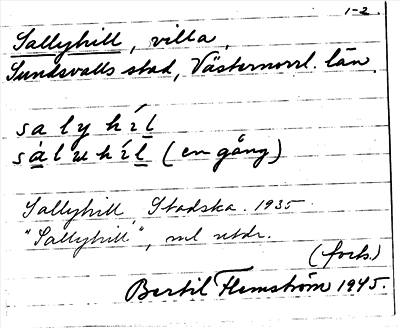 1-2.
Sallyhill, villa,
Sundsvalls stad, Västernorrl. län.
saly híl
sáluhíl (en gång)
Sallyhill Stadska. 1935
"Sallyhill", enl utdr.
(forts.)
Bertil Flemström 1945.